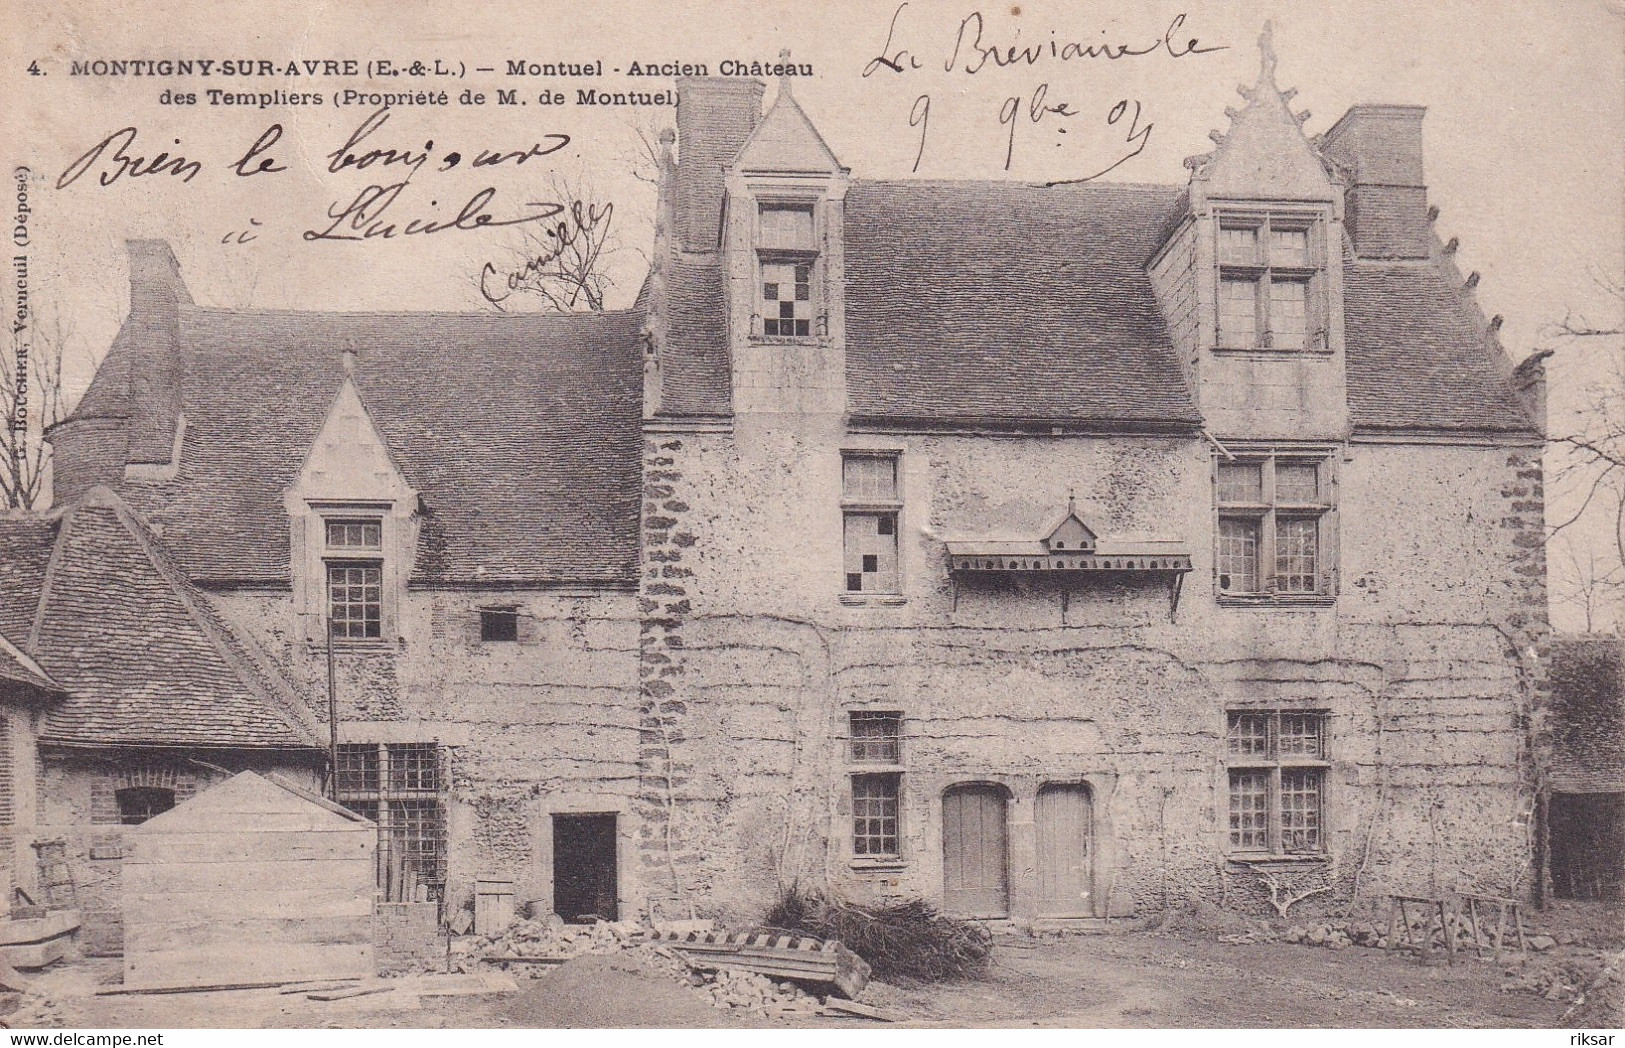 4. MONTIGNY-SUR-AVRE (E.-&-L.) — Montuel - Ancien Château
des Templiers (Propriété de M. de Montuel)
La Bréviaire le
9 9bre 03
Bien le bonjour
à Lucile
Camille
G. BOUCHER, Verneuil (Déposé)
www.delcampe.net
riksar